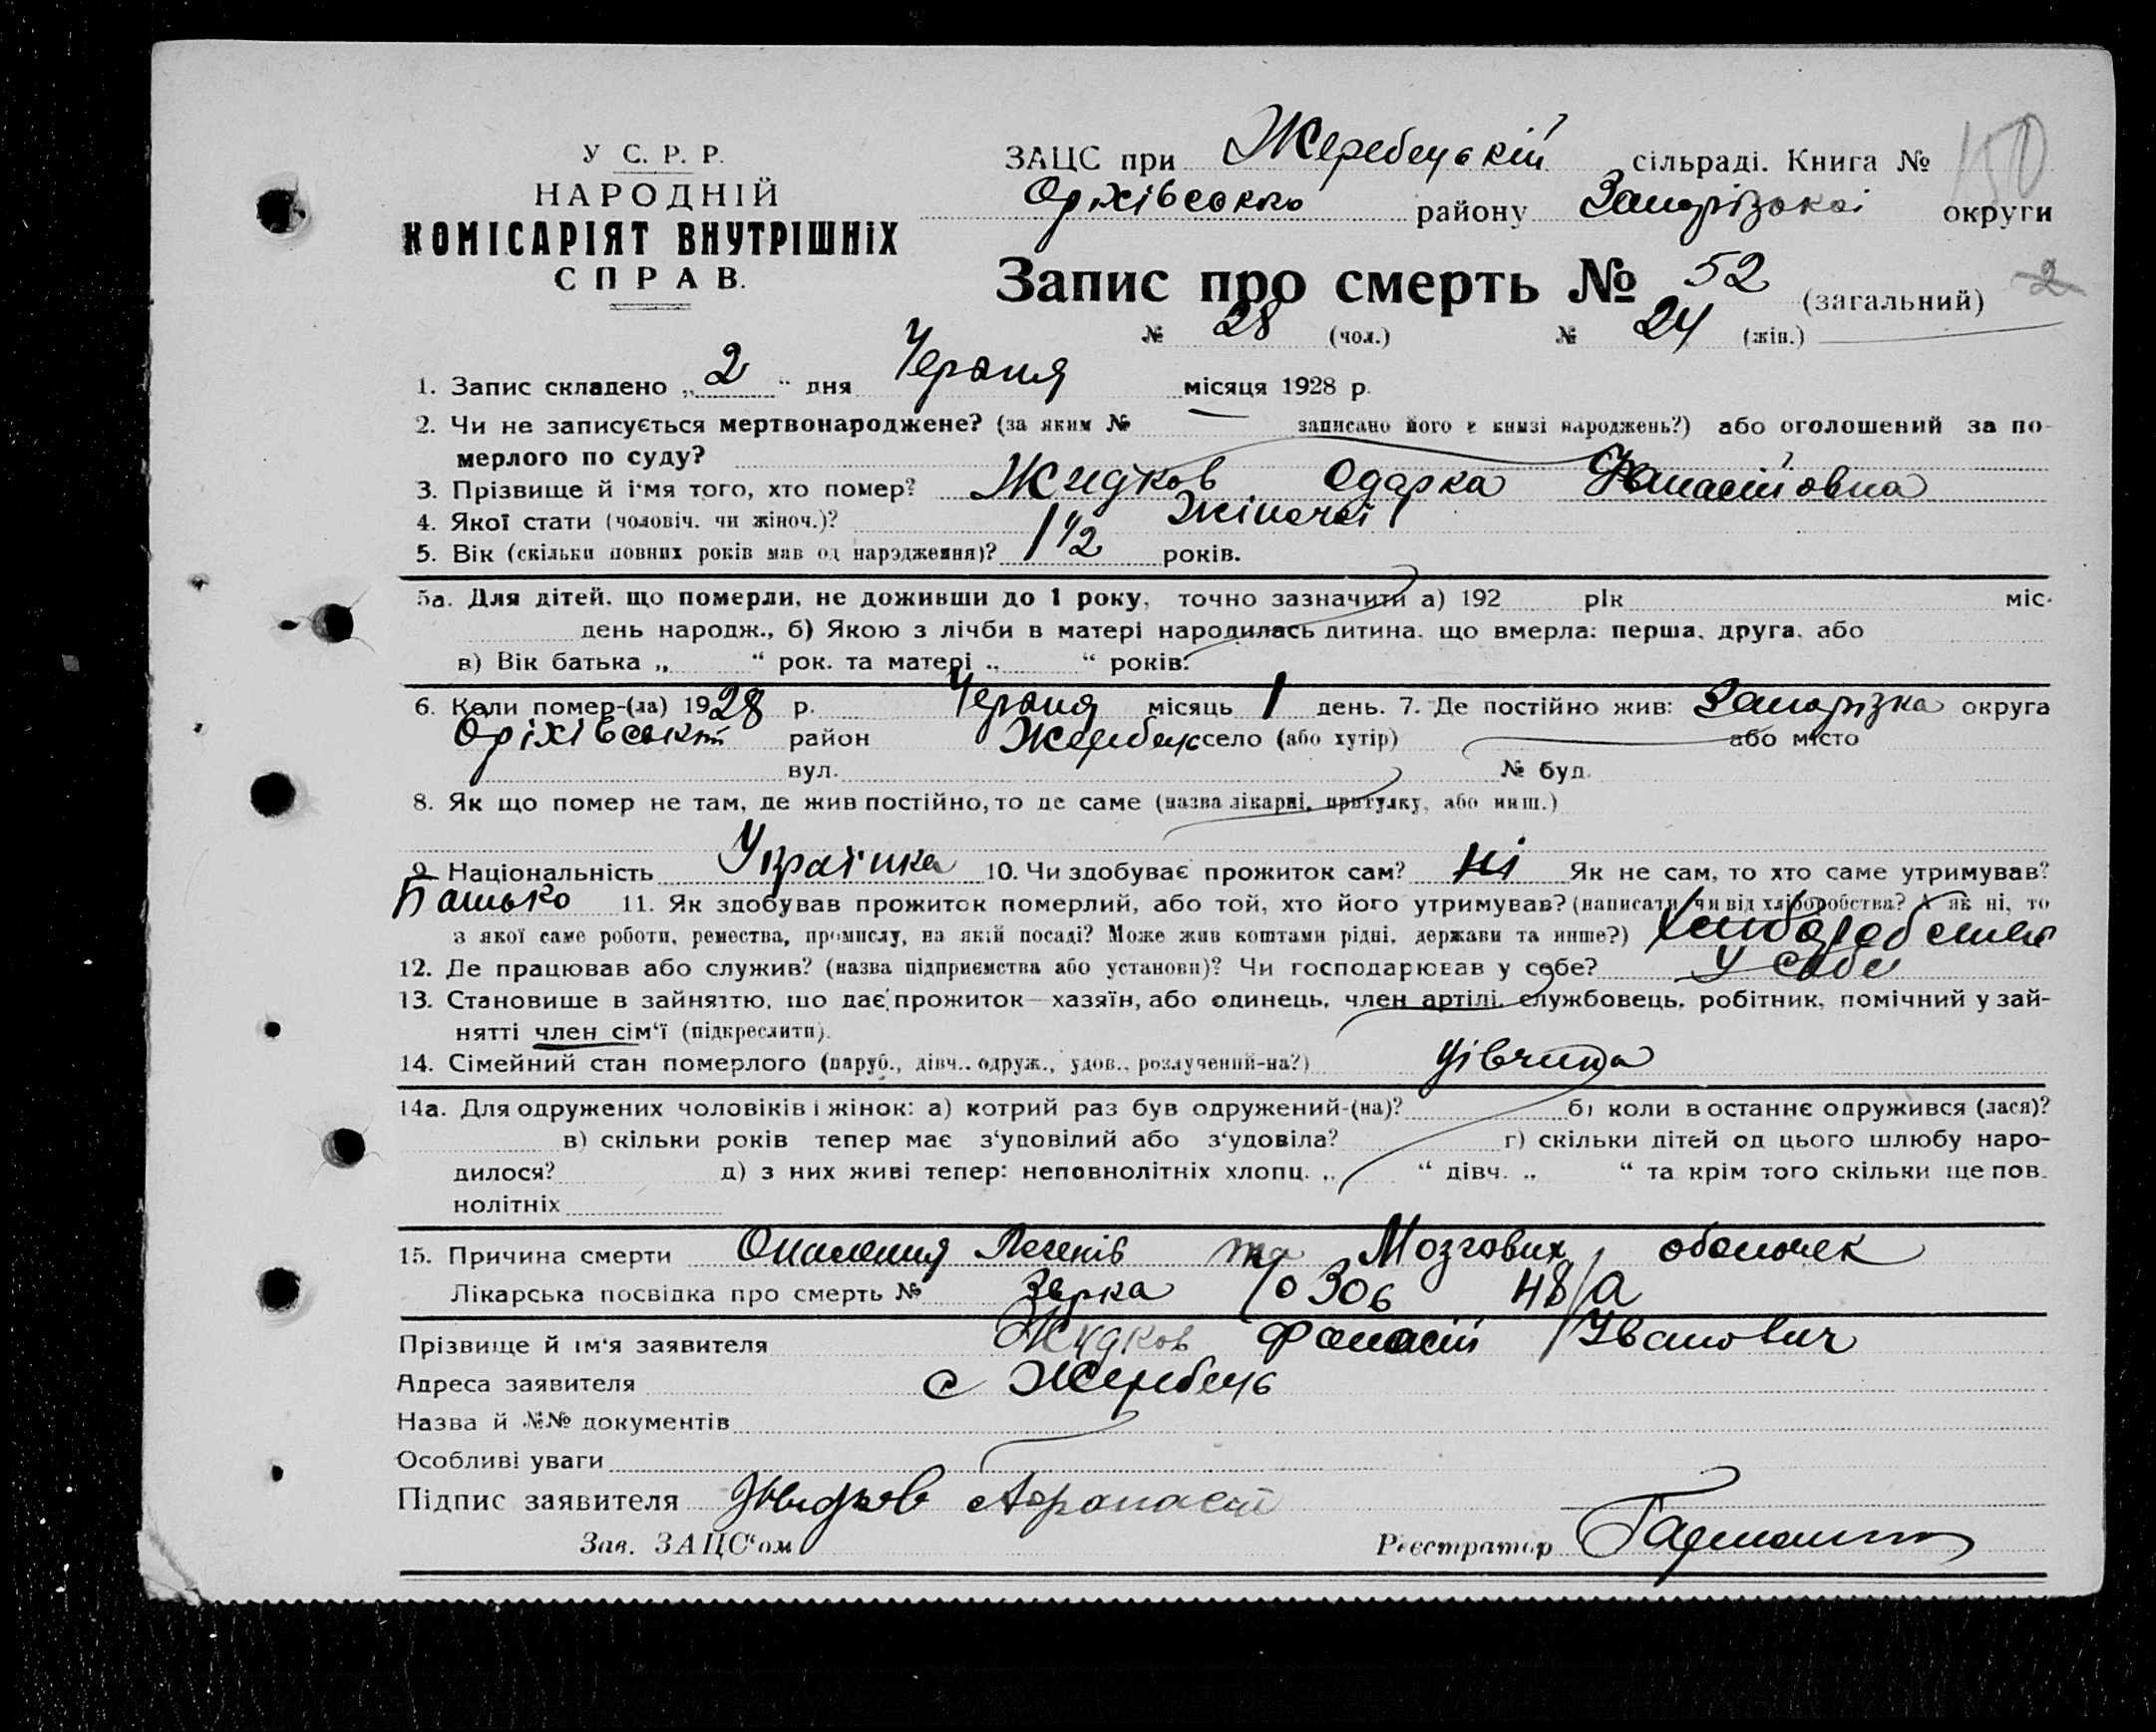 У С. Р. Р.
НАРОДНІЙ
КОМІСАРІЯТ ВНУТРІШНІХ
СПРАВ.
ЗАЦС при Жеребецькій сільраді. Книга № 150
Оріхівського району Запорізької округи
Запис про смерть № 52 (загальний) 2
№ 28 (чол.) № 24 (жін.)
1. Запис складено „2“ дня Червня місяця 1928 р.
2. Чи не записується мертвонароджене? (за яким № записано його в книзі народжень?) або оголошений за по-
мерлого по суду?
3. Прізвище й ім'я того, хто помер? Жидков Одарка Фанасіївна
4. Якої стати (чоловіч. чи жіноч.)? Жіночої
5. Вік (скільки повних років мав од народження)? 1 1/2 років.
5а. Для дітей, що померли, не доживши до 1 року, точно зазначити а) 192 рік міс.
день народж., б) Якою з лічби в матері народилась дитина, що вмерла: перша, друга, або
в) Вік батька „ “ рок. та матері „ “ років.
6. Коли помер-(ла) 1928 р. Червня місяць 1 день. 7. Де постійно жив: Запорізка округа
Оріхівськ район Жеребець село (або хутір) або місто
вул. № буд.
8. Як що помер не там, де жив постійно, то де саме (назва лікарні, притулку, або инш.)
9. Національність Українка 10. Чи здобуває прожиток сам? Ні Як не сам, то хто саме утримував?
Батько 11. Як здобував прожиток померлий, або той, хто його утримував? (написати, чи від хліборобства? А як ні, то
з якої саме роботи, ремества, промислу, на якій посаді? Може жив коштами рідні, держави та инше?)
12. Де працював або служив? (назва підприємства або установи)? Чи господарював у себе? У себе
13. Становище в зайняттю, що дає прожиток—хазяїн, або одинець, член артілі, службовець, робітник, помічний у зай-
нятті член сім'ї (підкреслити).
14. Сімейний стан померлого (паруб., дівч.. одруж., удов.. розлучений-на?) дівчина
14а. Для одружених чоловіків і жінок: а) котрий раз був одружений-(на)? б) коли в останнє одружився (лася)?
в) скільки років тепер має з'удовілий або з'удовіла? г) скільки дітей од цього шлюбу наро-
дилося? д) з них живі тепер: неповнолітніх хлопц. „ “ дівч. „ “ та крім того скільки ще пов.
нолітніх
15. Причина смерти Опалення Легенів та Мозгових оболочек
Лікарська посвідка про смерть № 306 48/а
Прізвище й ім'я заявителя Жидков Фанасій Іванович
Адреса заявителя с Жеребець
Назва й №№ документів
Особливі уваги
Підпис заявителя Жидков Афанасій
Зав. ЗАЦС“ом Реєстратор